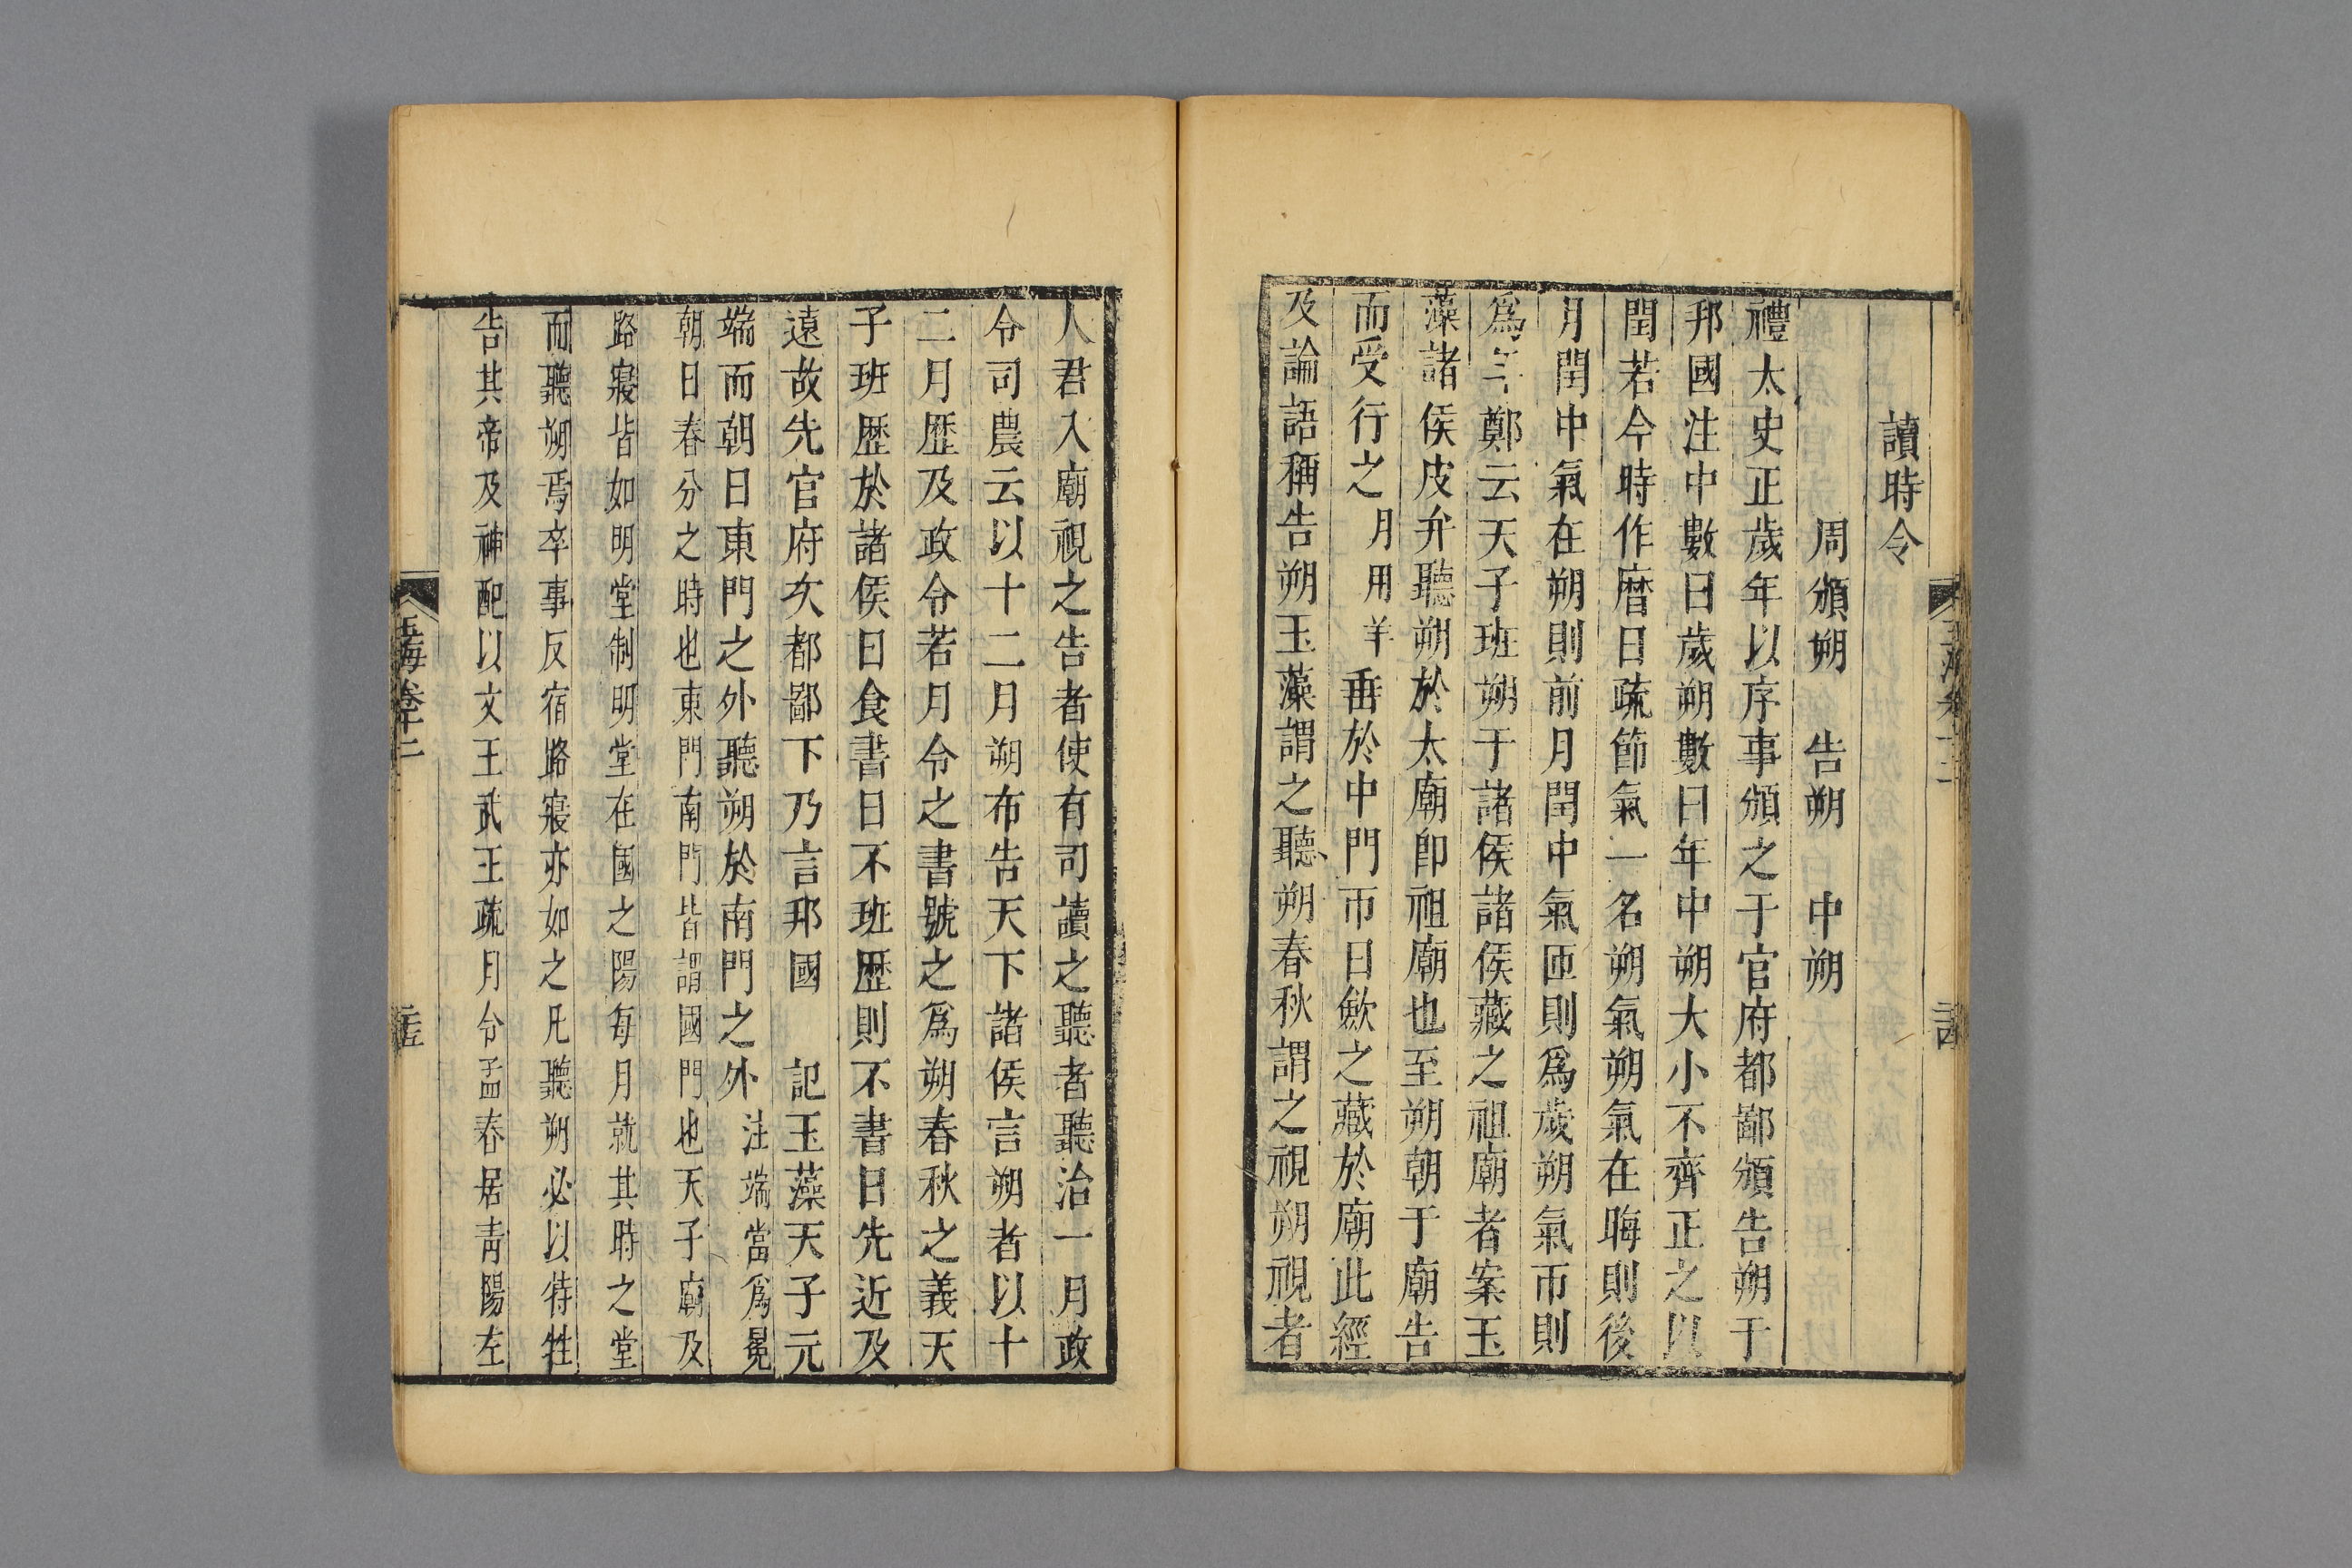 讀時令
周頒朔 告朔 中朔
禮太史正歲年以序事頒之于官府都鄙頒告朔于
邦國注中數曰歲朔數曰年中朔大小不齊正之以
閏若今時作曆日疏節氣一名朔氣朔氣在晦則後
月閏中氣在朔則前月閏中氣匝則爲歲朔氣帀則
爲年鄭云天子班朔于諸侯諸侯藏之祖廟者案玉
藻諸侯皮弁聽朔於太廟卽祖廟也至朔朝于廟告
而受行之月用羊垂於中門帀日歛之藏於廟此經
及論語稱告朔玉藻謂之聽朔春秋謂之視朔視者
人君入廟視之告者使有司讀之聽者聽治一月政
令司農云以十二月朔布告天下諸侯言朔者以十
二月歷及政令若月令之書號之爲朔春秋之義天
子班歷於諸侯日食書日不班歷則不書日先近及
遠故先官府次都鄙下乃言邦國 記玉藻天子元
端而朝日東門之外聽朔於南門之外注端當爲冕
朝日春分之時也東門南門皆謂國門也天子廟及
路寢皆如明堂制明堂在國之陽每月就其時之堂
而聽朔焉卒事反宿路寢亦如之凡聽朔必以特牲
告其帝及神配以文王武王疏月令孟春居青陽左
玉海卷十二